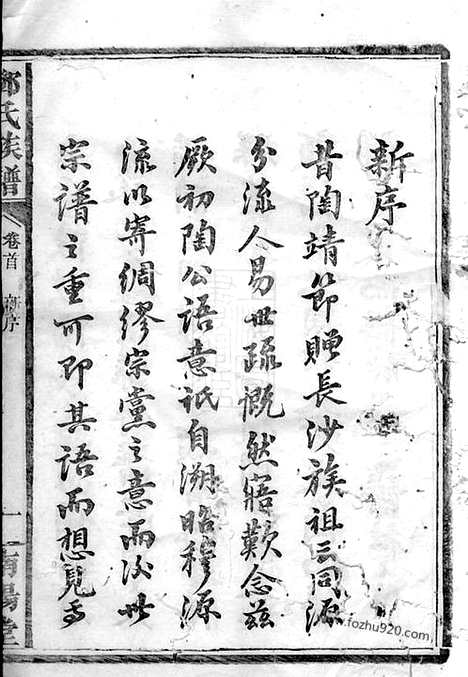 新序
昔陶靖節贈長沙族祖云同源
分流人易世疏慨然寤歎念茲
厥初陶公語意祇自溯昭穆源
流以寄綢繆宗黨之意而後世
宗譜之重可即其語而想見焉
氏族譜
卷首 新序
一 南陽堂
www.fozhu920.com